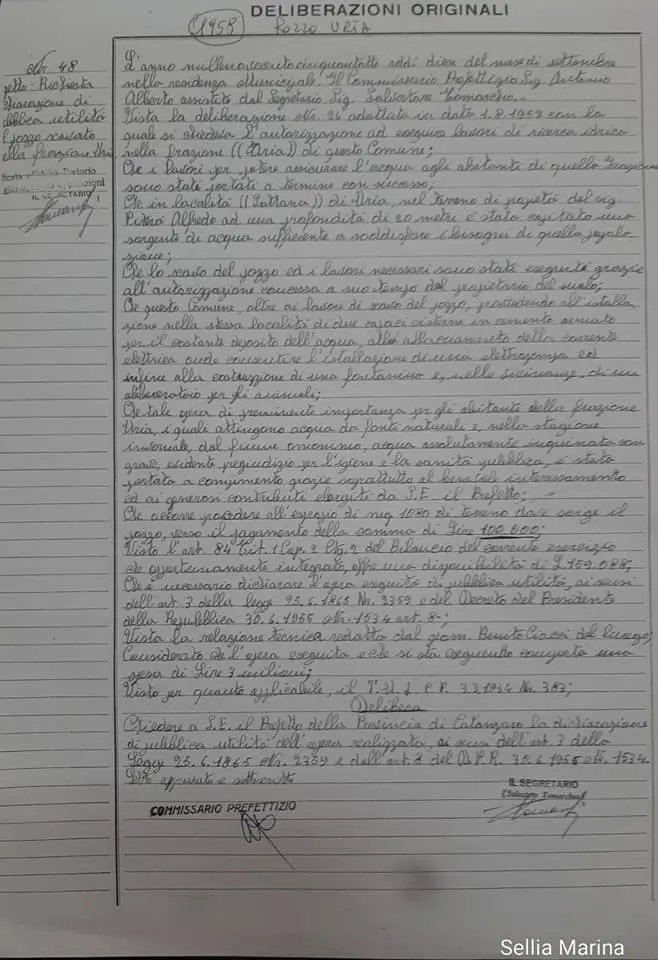 DELIBERAZIONI ORIGINALI
1958 Pozzo URIA
N. 48
getto: Richiesta
dichiarazione di
pubblica utilità
pozzo scavato
nella frazione Uria
IL SEGRETARIO
L'anno millenovecentocinquantotto addì dieci del mese di settembre
nella residenza Municipale. Il Commissario Prefettizio Sig. Antonio
Alberto assistito dal Segretario Sig. Salvatore Tomarchio.-
Vista la deliberazione Nr. 26 adottata in data 1.8.1957 con la
quale si chiedeva l'autorizzazione ad eseguire lavori di ricerca idrica
nella frazione ((Uria)) di questo Comune;
Che i lavori per potere assicurare l'acqua agli abitanti di quella frazione
sono stati portati a termine con successo;
Che in località ((Sottana)) di Uria, nel terreno di proprietà del sig.
Alfredo ad una profondità di 20 metri è stata captata una
sorgente di acqua sufficiente a soddisfare i bisogni di quella popola
zione;
Che lo scavo del pozzo ed i lavori necessari sono stati eseguiti grazie
all'autorizzazione concessa a suo tempo dal proprietario del suolo;
Che questo Comune, oltre ai lavori di scavo del pozzo, provvedendo all'istalla
zione nella stessa località di due capaci cisterne in cemento armato
per il costante deposito dell'acqua, allo allacciamento della corrente
elettrica onde consentire l'istallazione di una elettropompa ed
infine alla costruzione di una fontanina e, nelle vicinanze, di un
abbeveratoio per gli animali;
Che tale opera di preminente importanza per gli abitanti della frazione
Uria, i quali attingono acqua da fonte naturale e, nella stagione
invernale, dal fiume omonimo, acqua assolutamente inquinata con
grave, evidente pregiudizio per l'igiene e la sanità pubblica, è stata
portata a compimento grazie soprattutto al benevole interessamento
ed ai generosi contributi elargiti da S.E. il Prefetto; -
Che occorre procedere all'esproprio di mq 1080 di terreno dove sorge il
pozzo, verso il pagamento della somma di Lire 100.000;
Visto l'art. 84 Tit. 1 Cap. 2 Ctg. 2 del Bilancio del corrente esercizio
che opportunamente integrato, offre una disponibilità di L. 159.088;
Che è necessario dichiarare l'opera eseguita di pubblica utilità, ai sensi
dell'art. 3 della legge 25.6.1865 Nr. 2359 e del Decreto del Presidente
della Repubblica 30.6.1955 Nr. 1534 art. 8-;
Vista la relazione tecnica redatta dal geom. Benito Ciacci del luogo;
Considerato che l'opera eseguita e che si sta eseguendo comporta una
spesa di Lire 3 milioni;
Visto per quanto applicabile, il T.U.L.C.P. 3.3.1934 No. 383;
Delibera
Chiedere a S.E. il Prefetto della Provincia di Catanzaro la dichiarazione
di pubblica utilità dell'opera realizzata, ai sensi dell'art. 3 della
Legge 25.6.1865 Nr. 2359 e dell'art. 8 del D.P.R. 30.6.1955 Nr. 1534
Letto approvato e sottoscritto
COMMISSARIO PREFETTIZIO
IL SEGRETARIO
(Salvatore Tomarchio)
Sellia Marina